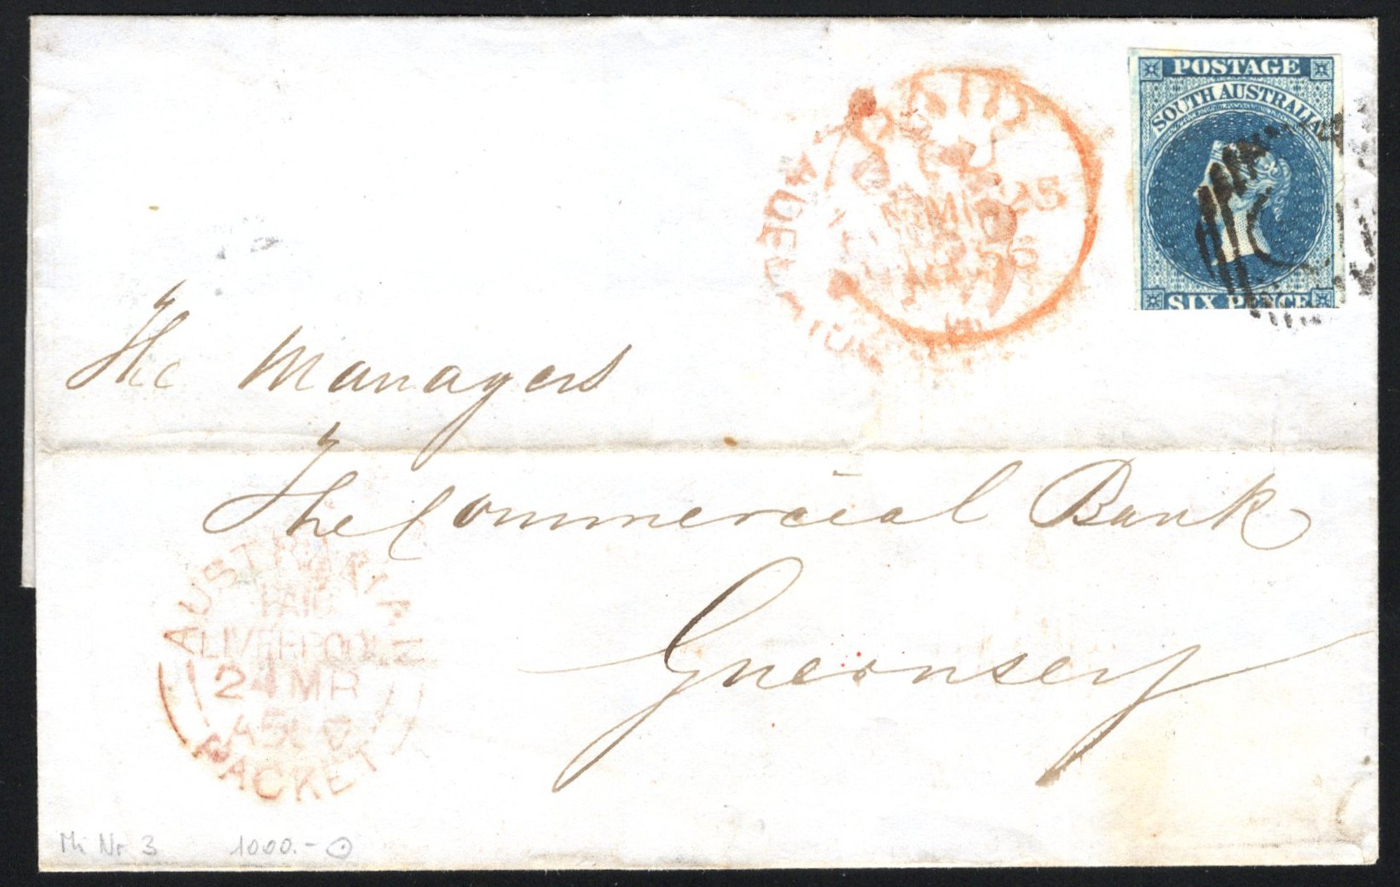 POSTAGE
SOUTH AUSTRALIA
SIX PENCE
PAID
The Managers
The Commercial Bank
Guernsey
AUSTRALIAN
PAID
LIVERPOOL
24 MR
PACKET
Mi Nr 3 1000.-